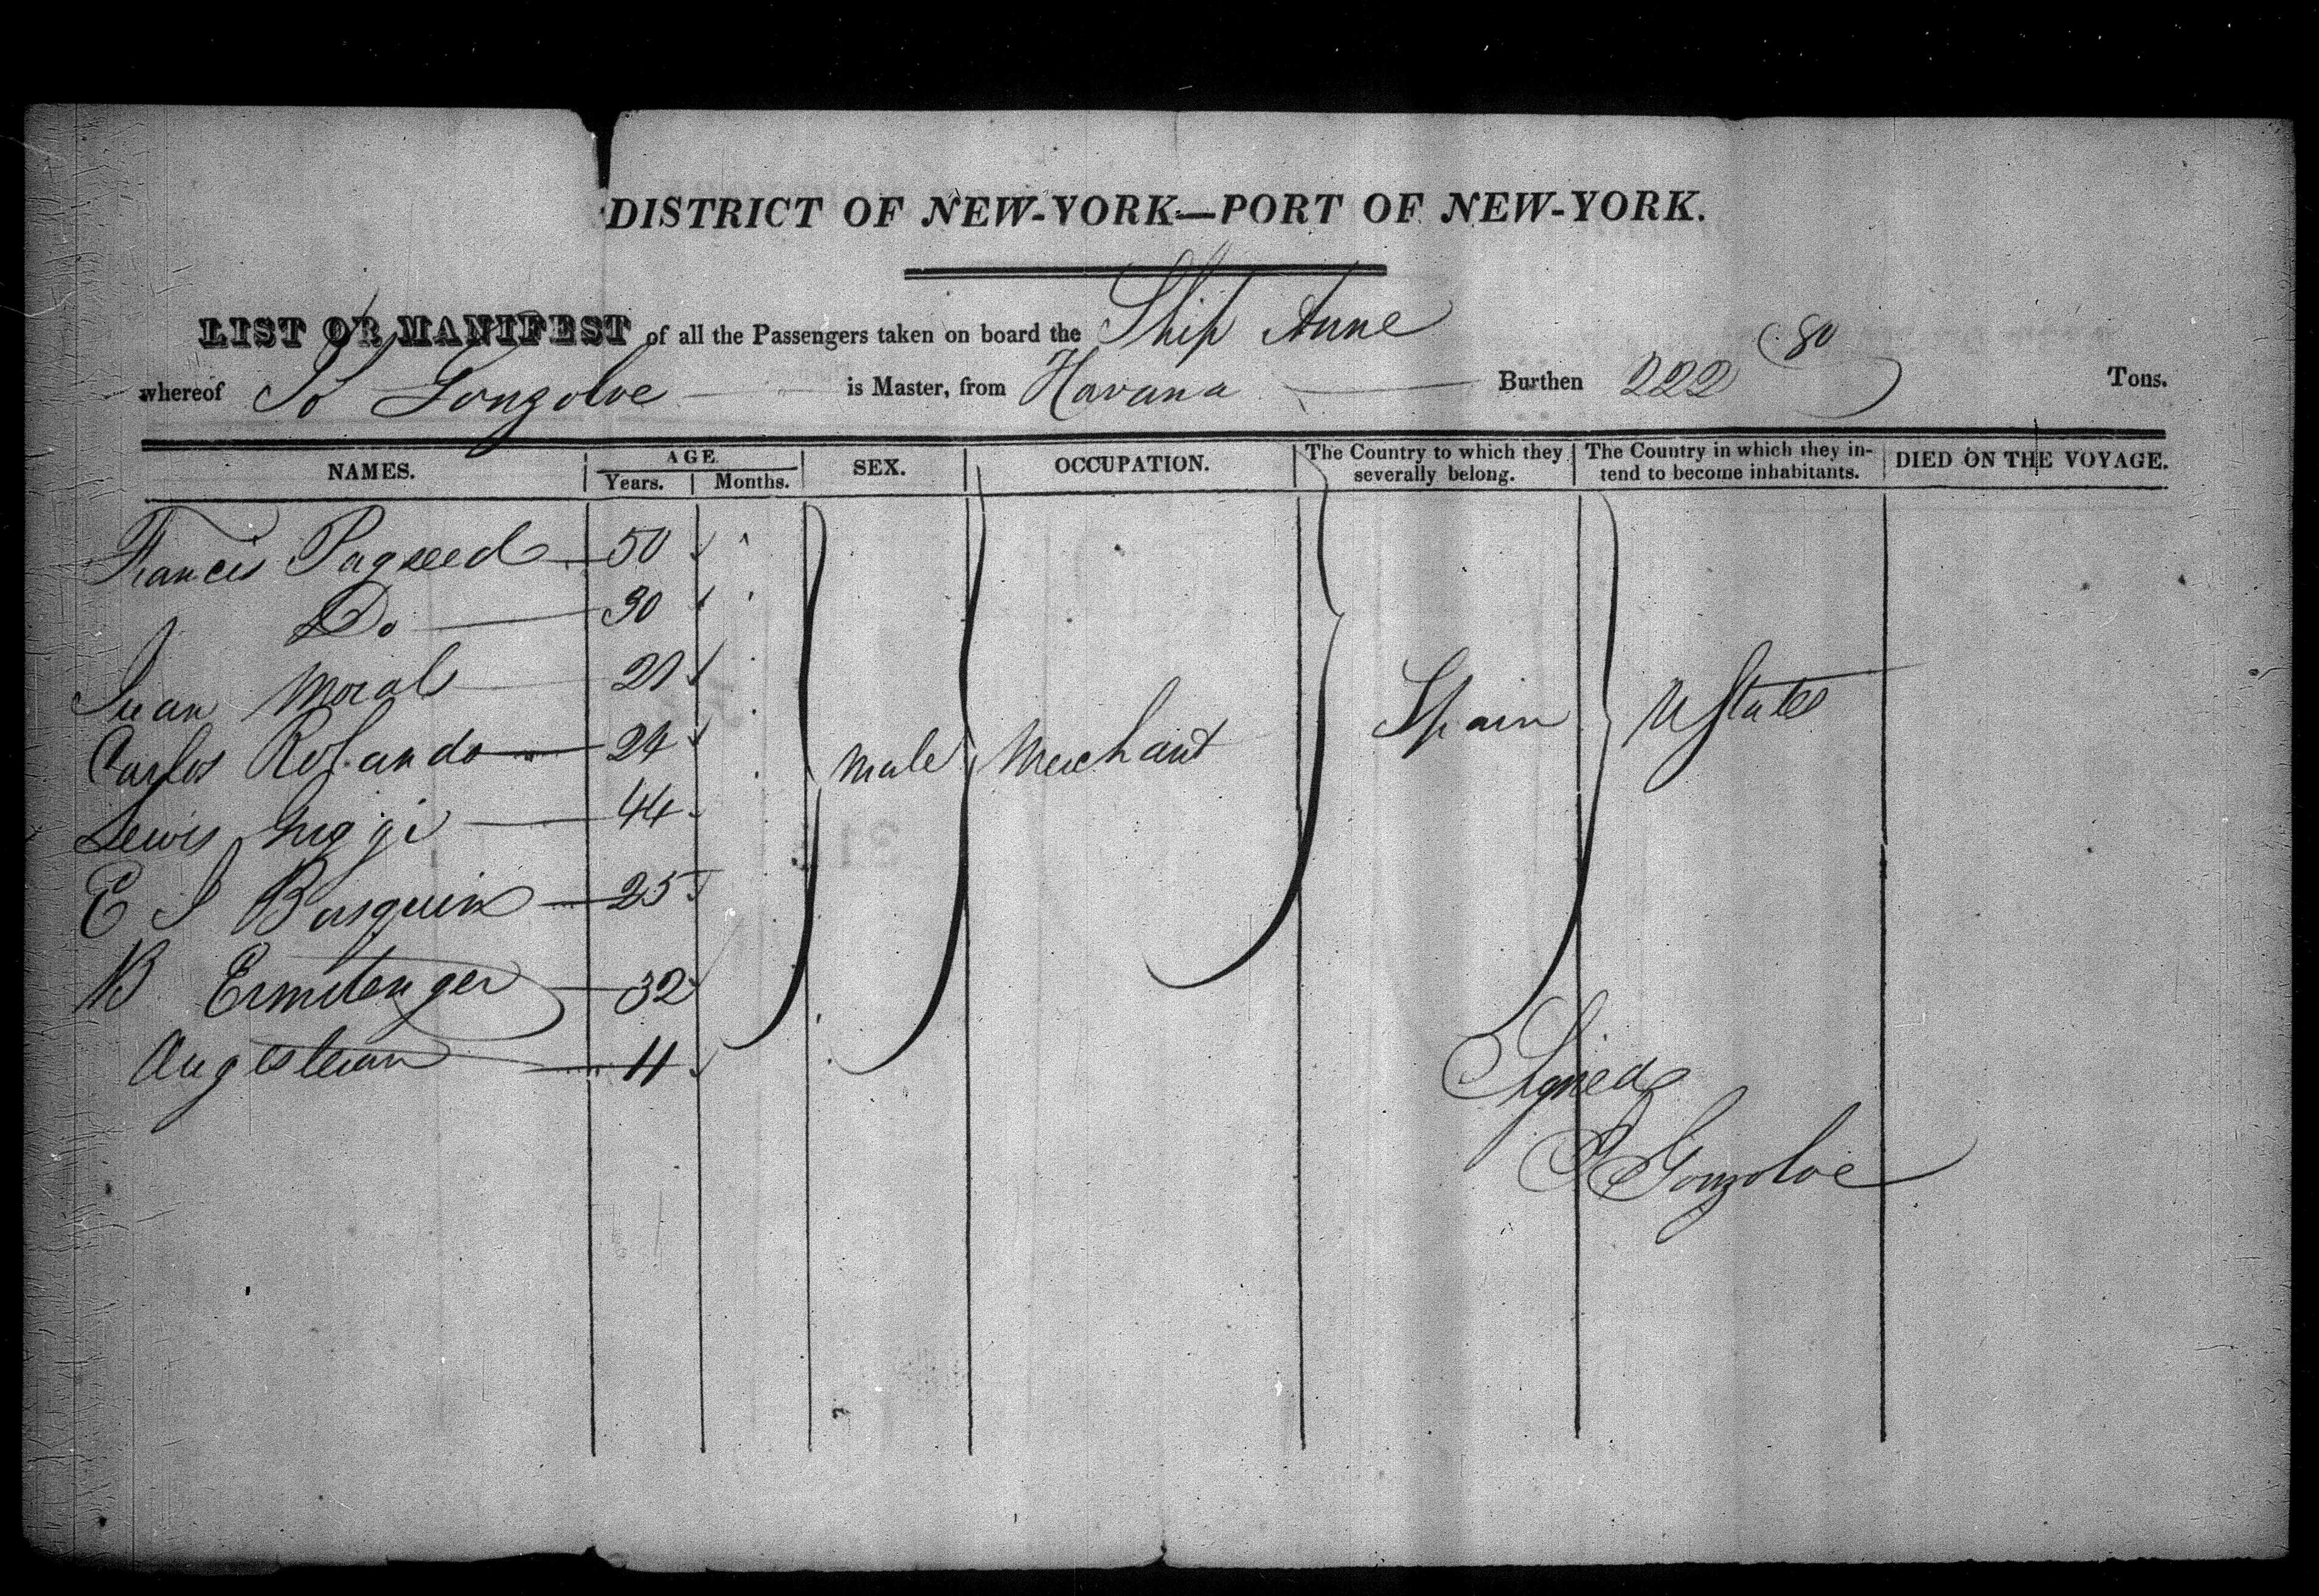 DISTRICT OF NEW-YORK—PORT OF NEW-YORK.
LIST OR MANIFEST of all the Passengers taken on board the Ship Anne
whereof Gonzolve is Master, from Havana Burthen 222 80 Tons.
NAMES. AGE. Years. Months. SEX. OCCUPATION. The Country to which they severally belong. The Country in which they intend to become inhabitants. DIED ON THE VOYAGE.
Francis 50
Do 30
Juan Moral 21
Carlos Rolando 24 male Merchant Spain U States
Lewis 44
E S Basquin 25
B Ermitenger 32
11
Signed
Gonzolve